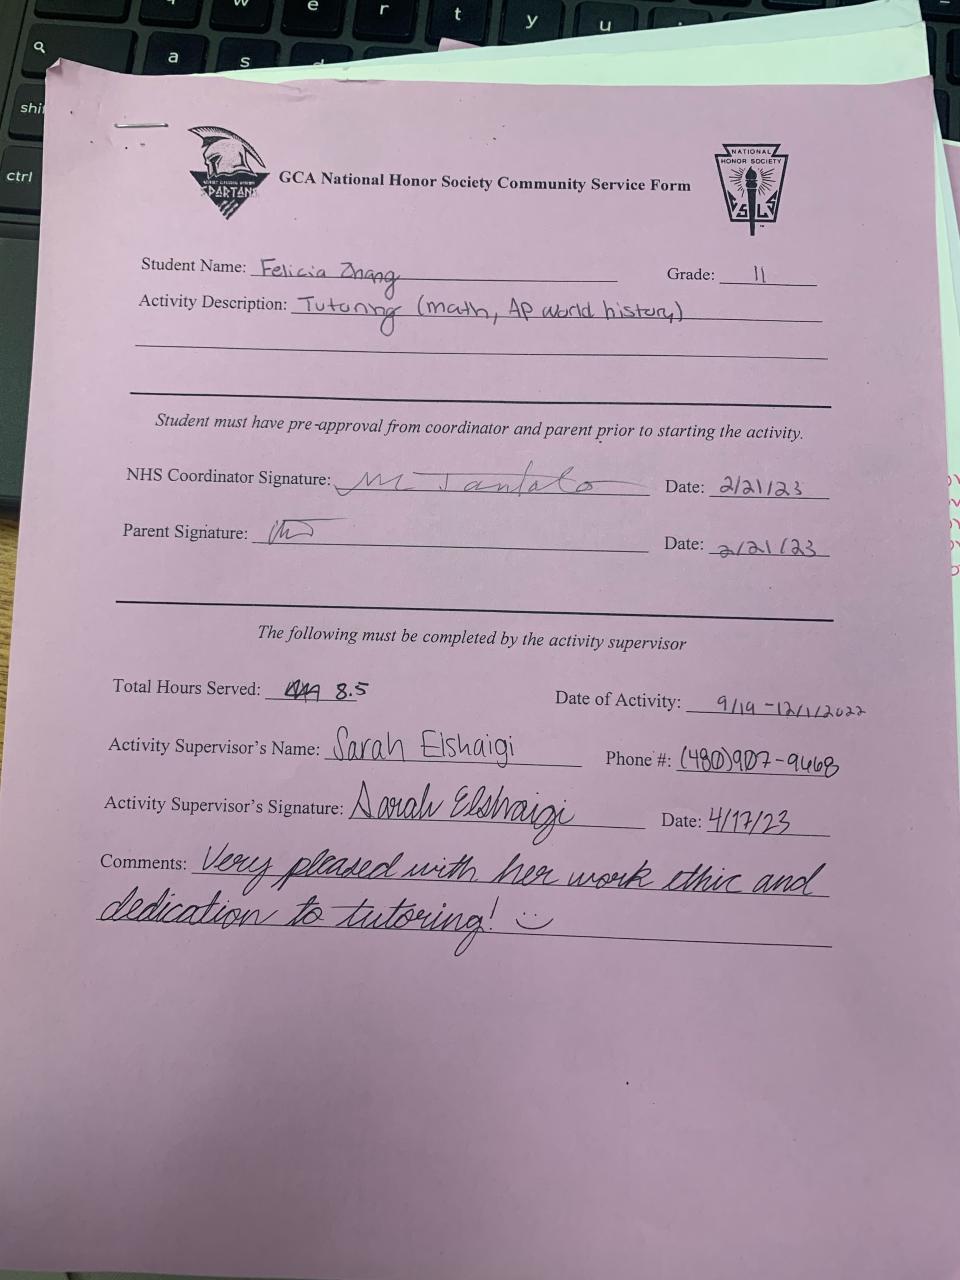 w e r t y u
a s d
shi
ctrl
SPARTANS
GCA National Honor Society Community Service Form
NATIONAL
HONOR SOCIETY
S L S
Student Name: Felicia Zhang Grade: 11
Activity Description: Tutoring (math, AP world history)
Student must have pre-approval from coordinator and parent prior to starting the activity.
NHS Coordinator Signature: Date: 2/21/23
Parent Signature: Date: 2/21/23
The following must be completed by the activity supervisor
Total Hours Served: 8.5 Date of Activity: 9/19 - 12/1/2022
Activity Supervisor's Name: Sarah Elshaigi Phone #: (480)907-9668
Activity Supervisor's Signature: Sarah Elshaigi Date: 4/17/23
Comments: Very pleased with her work ethic and
dedication to tutoring! :)